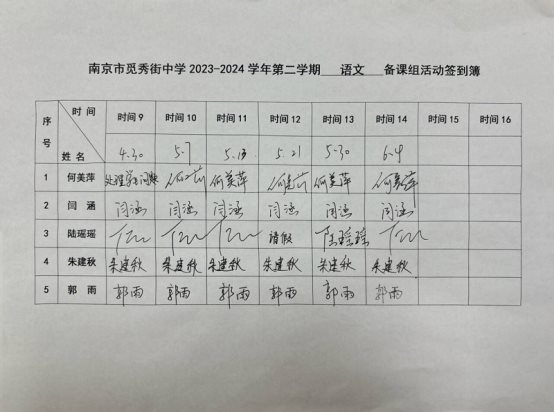 南京市觅秀街中学 2023-2024 学年第二学期 语文 备课组活动签到簿
序号 时间 姓名 时间 9 时间 10 时间 11 时间 12 时间 13 时间 14 时间 15 时间 16
4.30 5.7 5.13 5.21 5-30 6-4
1 何美萍 处理学生问题 何美萍 何美萍 何美萍 何美萍
2 闫涵 闫涵 闫涵 闫涵 闫涵 闫涵 闫涵
3 陆瑶瑶 请假 陆瑶瑶
4 朱建秋 朱建秋 朱建秋 朱建秋 朱建秋 朱建秋 朱建秋
5 郭雨 郭雨 郭雨 郭雨 郭雨 郭雨 郭雨